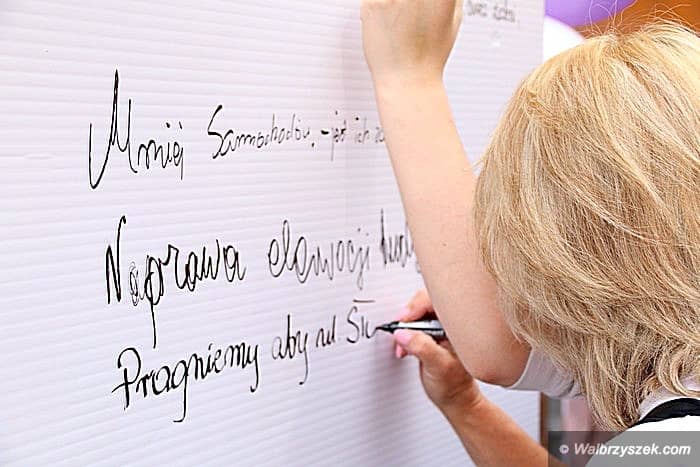 Mniej Samochodów, - jest ich
Naprawa elewacji
Pragniemy aby ul.
© Walbrzyszek.com